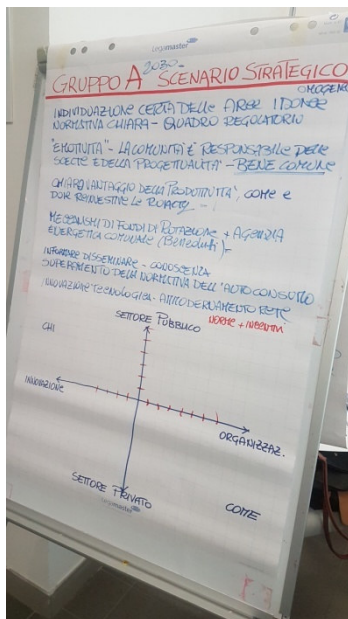 Legamaster
2030
GRUPPO A SCENARIO STRATEGICO
OMOGENEO
INDIVIDUAZIONE CERTA DELLE AREE IDONEE
NORMATIVA CHIARA - QUADRO REGOLATORIO
"EMOTIVITÀ" - LA COMUNITÀ È RESPONSABILE DELLE
SCELTE E DELLA PROGETTUALITÀ - BENE COMUNE
CHIARO VANTAGGIO DELLA PRODUTTIVITÀ, COME E
DOVE REINVESTIRE LE ROYALTY
MECCANISMI DI FONDI DI ROTAZIONE + AGENZIA
ENERGETICA COMUNALE
INFORMARE DISSEMINARE - CONOSCENZA
SUPERAMENTO DELLA NORMATIVA DELL'AUTOCONSUMO
INNOVAZIONE TECNOLOGICA - AMMODERNAMENTO RETE
SETTORE PUBBLICO
NORME + INCENTIVI
CHI
INNOVAZIONE
ORGANIZZAZ.
SETTORE PRIVATO
COME
Legamaster